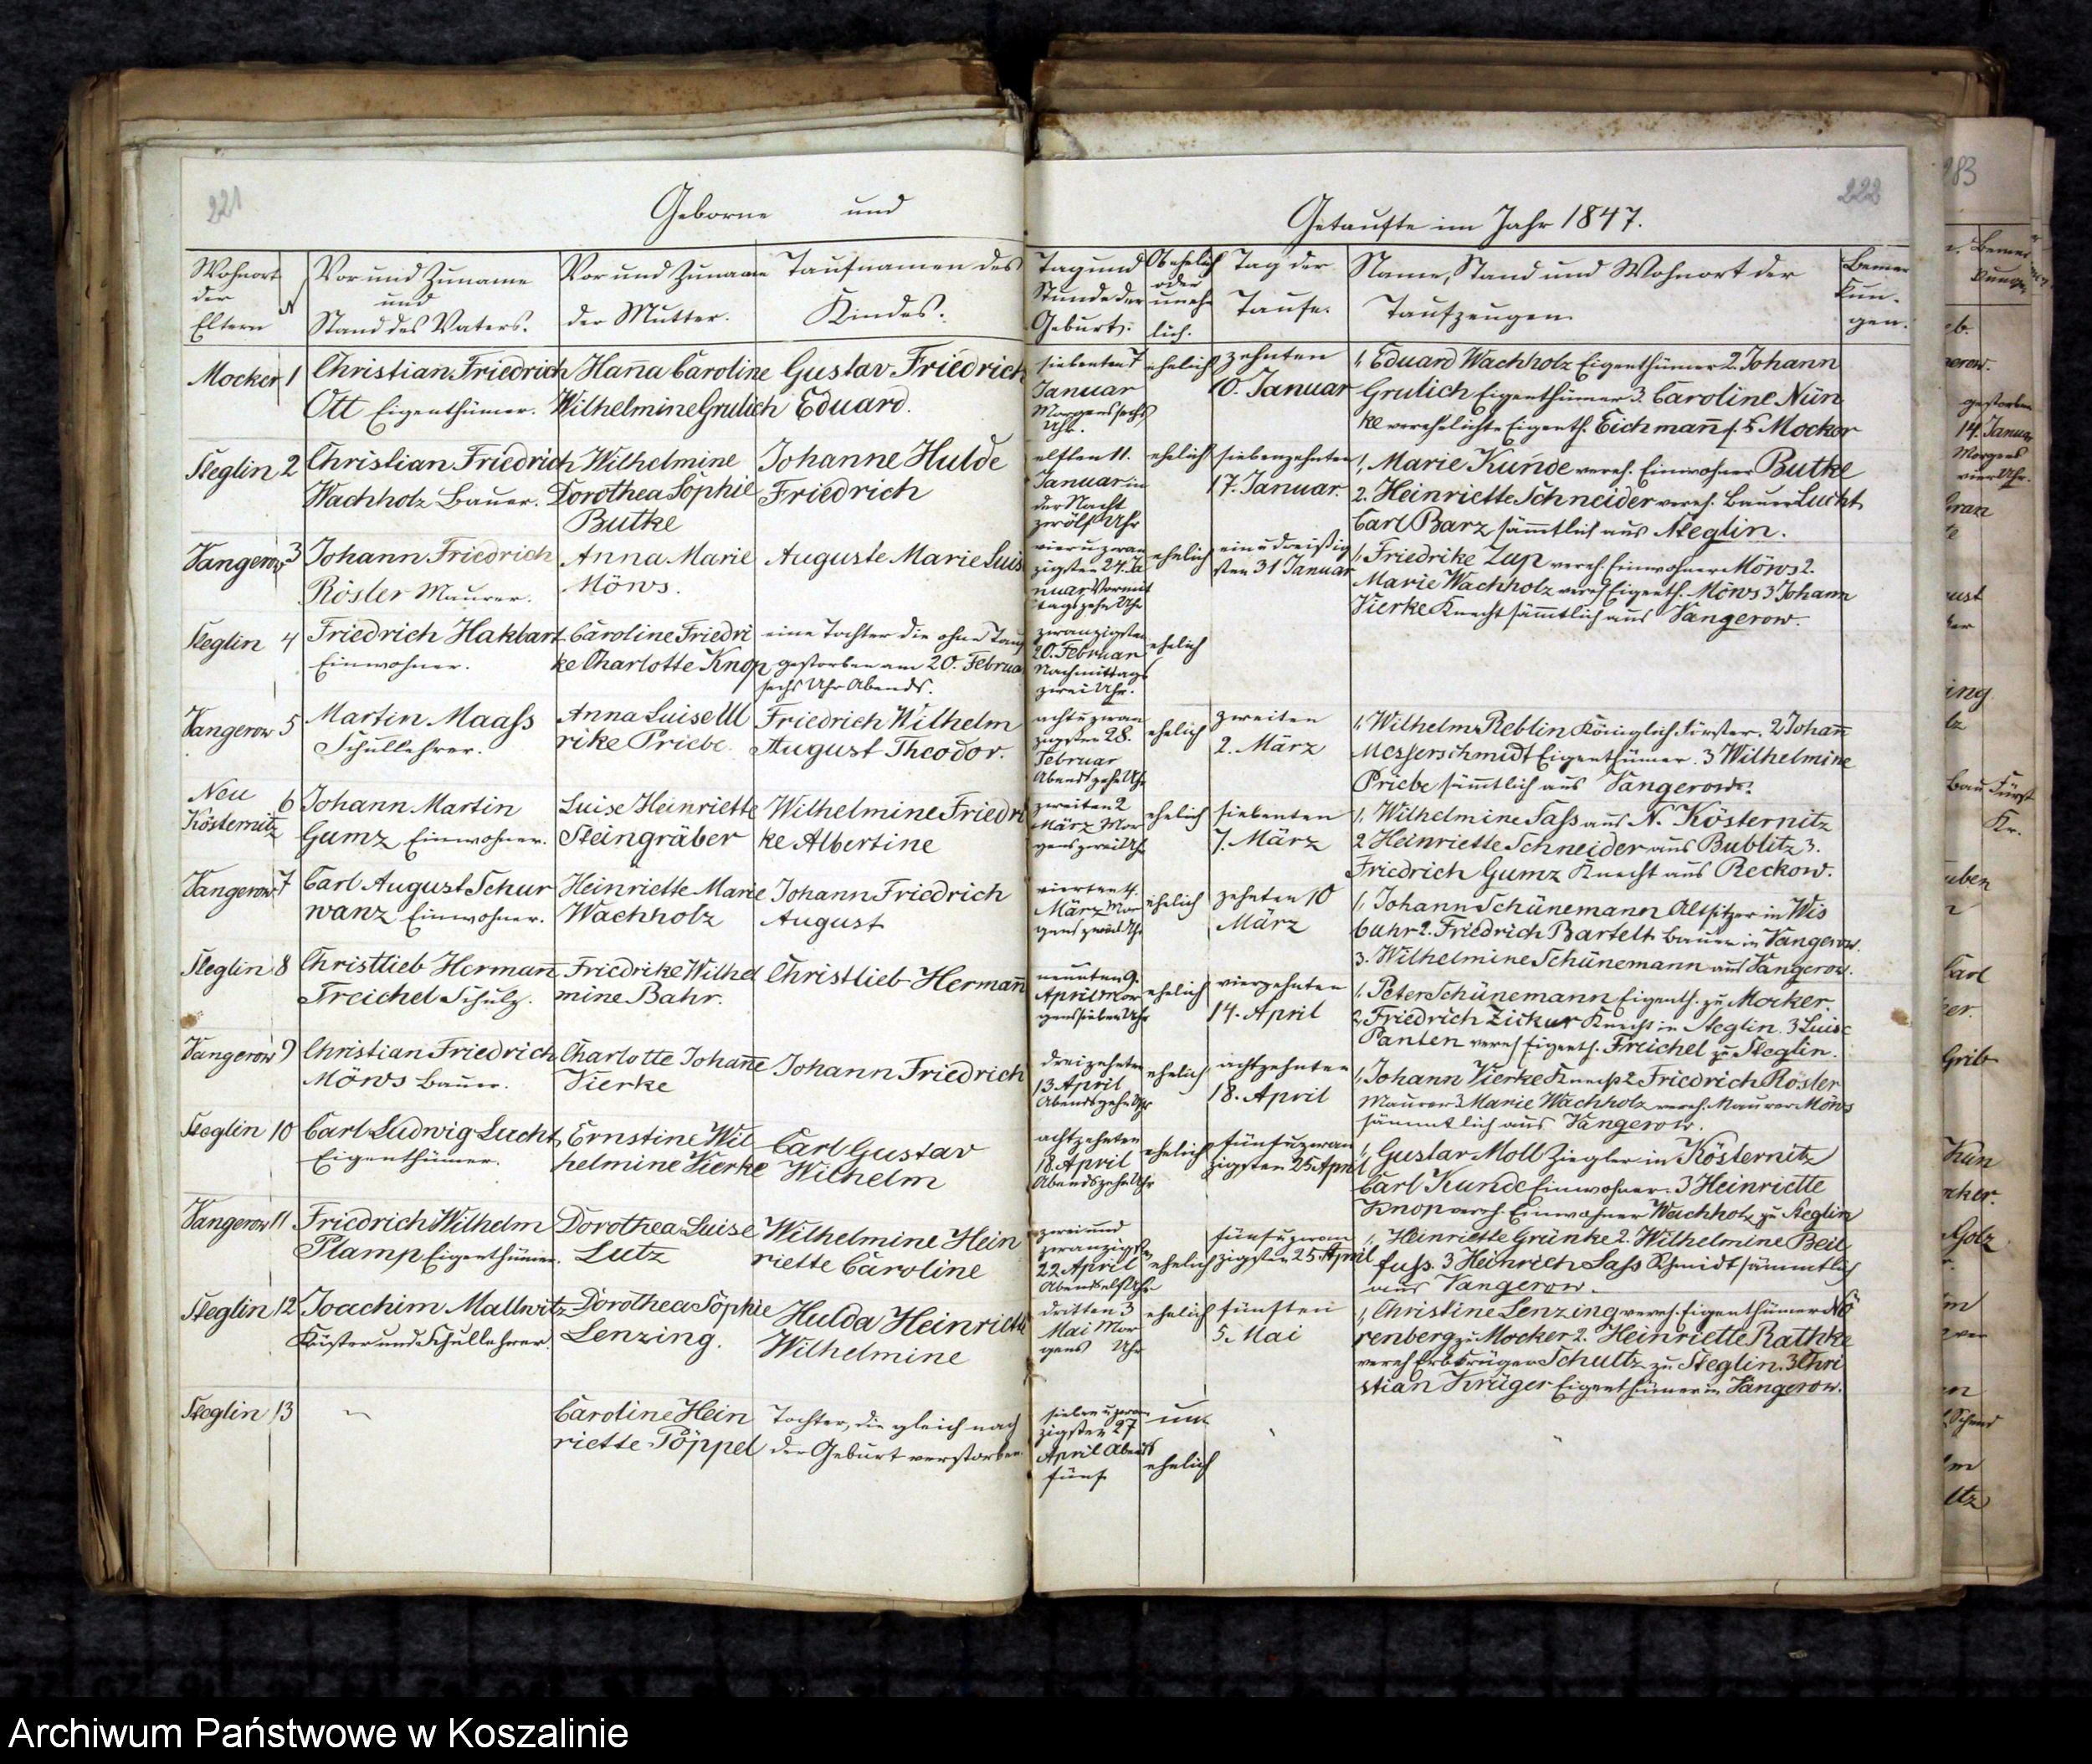 221
Geborne und
Wohnort
der
Eltern
N
Vor und Zuname
und
Stand des Vaters.
Vor und Zuname
der Mutter.
Taufnamen des
Kindes.
Mocker 1
Christian Friedrich
Ott Eigenthümer.
Hanna Caroline
Wilhelmine Grulich
Gustav Friedrich
Eduard.
Steglin 2
Christian Friedrich
Wachholz Bauer.
Wilhelmine
Dorothea Sophie
Butke
Johanne Hulde
Friedrich
Vangerow 3
Johann Friedrich
Rösler Maurer.
Anna Marie
Möws.
Auguste Marie Luis
Steglin 4
Friedrich Hakbart
Einwohner.
Caroline Friedri
ke Charlotte Knop
eine Tochter die ohne Tauf
gestorben am 20. Februar
sechs Uhr Abends.
Vangerow 5
Martin Maass
Schullehrer.
Anna Luise Ul
rike Priebe.
Friedrich Wilhelm
August Theodor.
Neu 6
Kösternitz
Johann Martin
Gumz Einwohner.
Luise Heinriette
Steingräber
Wilhelmine Friedri
ke Albertine
Vangerow 7
Carl August Schur
wanz Einwohner.
Heinriette Marie
Wachholz
Johann Friedrich
August
Steglin 8
Christlieb Hermann
Treichel Schulz.
Friedrike Wilhel
mine Bahr.
Christlieb Hermann
Vangerow 9
Christian Friedrich
Möws Bauer.
Charlotte Johanne
Vierke
Johann Friedrich
Steglin 10
Carl Ludwig Lucht
Eigenthümer.
Ernstine Wil
helmine Vierke
Carl Gustav
Wilhelm
Vangerow 11
Friedrich Wilhelm
Plamp Eigenthümer.
Dorothea Luise
Lutz
Wilhelmine Hein
riette Caroline
Steglin 12
Joachim Mallwitz
Küster und Schullehrer.
Dorothea Sophie
Lenzing.
Hulda Heinriette
Wilhelmine
Steglin 13
Caroline Hein
riette Pöppel
Tochter, die gleich nach
der Geburt verstorben.
222
Getaufte im Jahr 1847.
Tag und
Stunde der
Geburt.
Ob ehelich
oder
uneh
lich.
Tag der
Taufe.
Name, Stand und Wohnort der
Taufzeugen.
Bemer
kun-
gen.
siebenten 7
Januar
Morgens sechs
Uhr.
ehelich
zehnten
10. Januar
1, Eduard Wachholz Eigenthümer 2. Johann
Grulich Eigenthümer 3. Caroline Nün
ke verehelichte Eigenth. Eichmann Mocker
elften 11.
Januar in
der Nacht
zwölf Uhr
ehelich
siebenzehnten
17. Januar.
1, Marie Kunde vereh. Einwohner Butke
2. Heinriette Schneider vereh. Bauer Lucht
Carl Barz sämmtlich aus Steglin.
vier u zwan
zigsten 24. Ja
nuar Vormit
tags zehn Uhr
ehelich
ein u dreißig
sten 31 Januar
1, Friedrike Zup vereh. Einwohner Möws 2.
Marie Wachholz vereh Eigenth. Möws 3 Johann
Vierke Knecht sämmtlich aus Vangerow.
zwanzigsten
20. Februar
Nachmittags
zwei Uhr.
ehelich
acht u zwan
zigsten 28.
Februar
Abends zehn Uhr
ehelich
zweiten
2. März
1, Wilhelm Reblin Königlich Förster. 2 Johann
Messerschmidt Eigenthümer. 3 Wilhelmine
Priebe sämtlich aus Vangerow.
zweiten 2
März Mor
gens zwei Uhr
ehelich
siebenten
7. März
1, Wilhelmine Sass aus N. Kösternitz
2 Heinriette Schneider aus Bublitz 3.
Friedrich Gumz Knecht aus Reckow.
vierten 4.
März Mor
gens Uhr
ehelich
zehnten 10
März
1, Johann Schünemann Altsitzer in Wis
buhr 2. Friedrich Bartelt Bauer in Vangerow.
3. Wilhelmine Schünemann aus Vangerow.
neunten 9.
April Mor
gens sieben Uhr
ehelich
vierzehnten
14. April
1, Peter Schünemann Eigenth. zu Mocker
2, Friedrich Zickur Knecht in Steglin. 3 Luise
Panten vereh Eigenth. Treichel zu Steglin.
dreizehnten
13 April
Abends zehn Uhr
ehelich
achtzehnten
18. April
1, Johann Vierke Knecht 2 Friedrich Rösler
Maurer 3 Marie Wachholz vereh. Maurer Möws
sämmtlich aus Vangerow.
achtzehnten
18. April
Abends zehn Uhr
ehelich
fünf u zwan
zigsten 25 April
1, Gustav Moll Ziegler in Kösternitz
Carl Kunde Einwohner. 3 Heinriette
Knop vereh. Einwohner Wachholz zu Steglin
zwei und
zwanzigsten
22 April
Abends elf Uhr
ehelich
fünf u zwan
zigsten 25 April
1, Heinriette Grünke 2. Wilhelmine Beil
fuss. 3 Heinrich Sass Schmidt sämmtlich
aus Vangerow.
dritten 3
Mai Mor
gens Uhr
ehelich
fünften
5. Mai
1, Christine Lenzing vereh. Eigenthümer Nö
renberg zu Mocker 2. Heinriette Rathke
vereh Erbkrüger Schultz zu Steglin. 3 Chri
stian Krüger Eigenthümer in Vangerow.
sieben u zwan
zigsten 27
April Abends
fünf
un
ehelich
Bemer
gestorben
14. Januar
Morgens
vier Uhr.
Archiwum Państwowe w Koszalinie